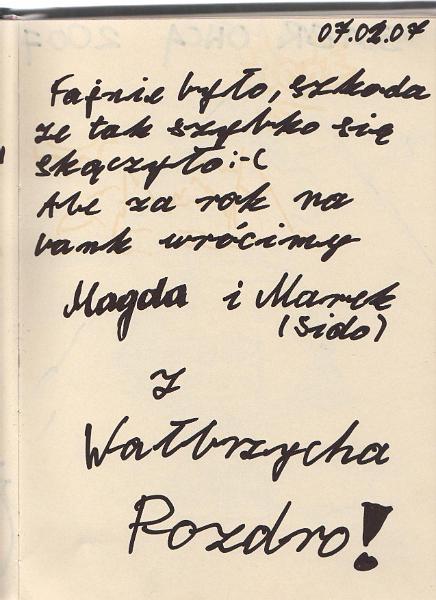 07.02.07
Fajnie było, szkoda
że tak szybko się
skączyło :-(
Ale za rok na
bank wrócimy
Magda i Marek
(Sido)
z
Wałbrzycha
Pozdro!